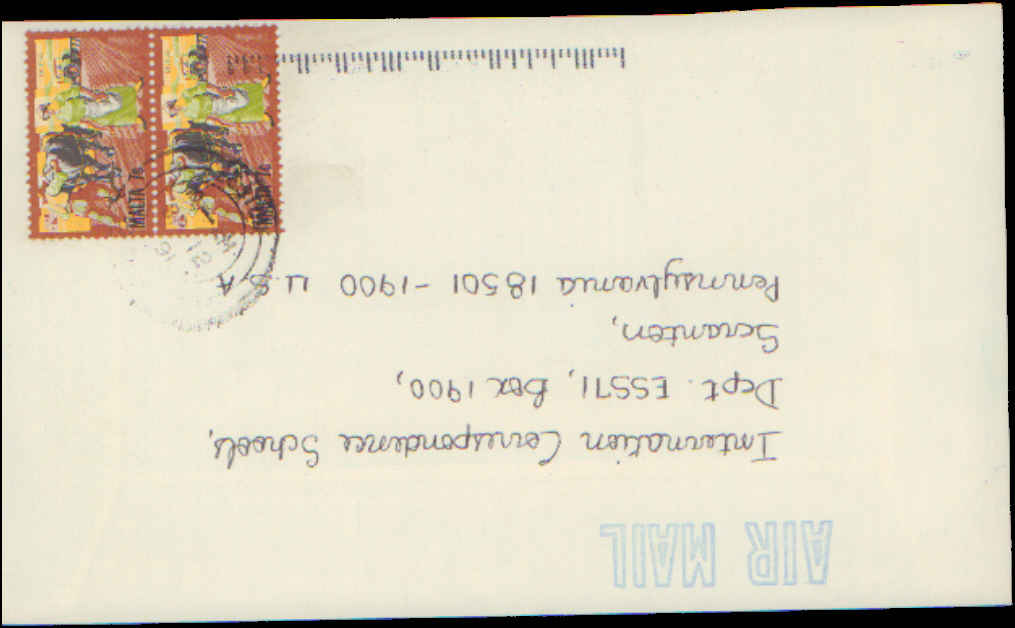 AIR MAIL
Internation Correspondence Schools,
Dept. ESST1, Box 1900,
Scranton,
Pennsylvania 18501-1900 U.S.A
MALTA 7c
MALTA 7c